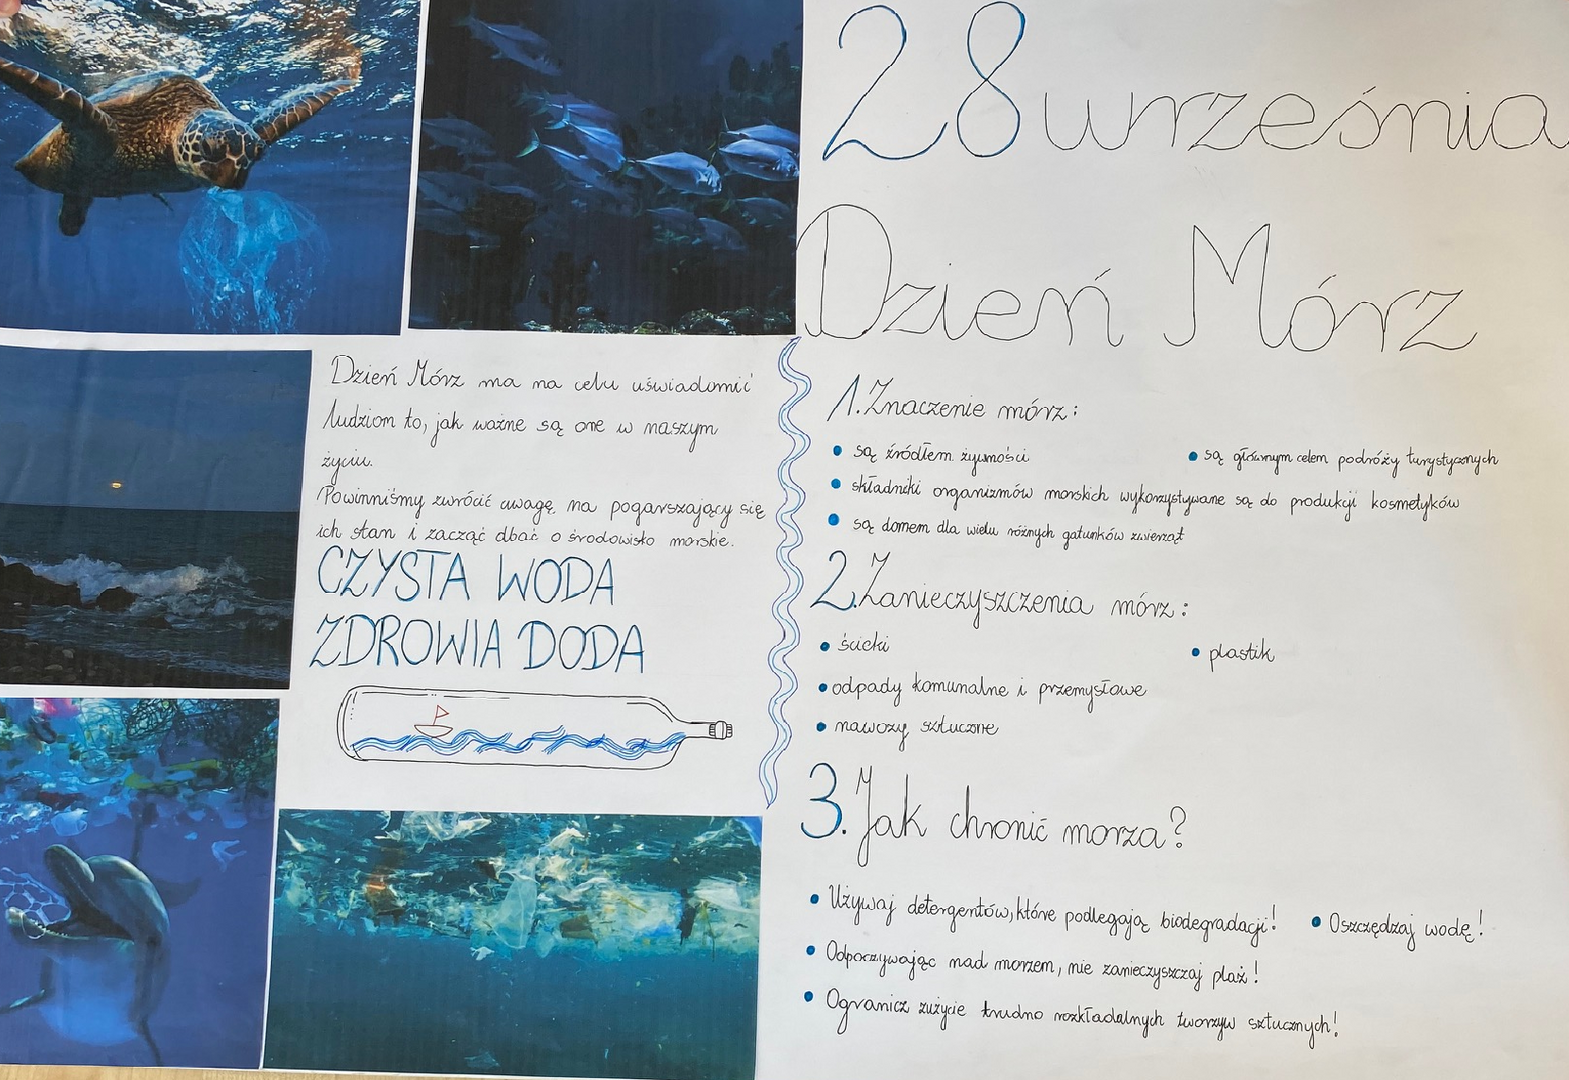 28 września
Dzień Mórz
Dzień Mórz ma na celu uświadomić
ludziom to, jak ważne są one w naszym
życiu.
Powinniśmy zwrócić uwagę na pogarszający się
ich stan i zacząć dbać o środowisko morskie.
CZYSTA WODA
ZDROWIA DODA
1. Znaczenie mórz:
• są źródłem żywności
• są głównym celem podróży turystycznych
• składniki organizmów morskich wykorzystywane są do produkcji kosmetyków
• są domem dla wielu różnych gatunków zwierząt
2. Zanieczyszczenia mórz:
• ścieki
• plastik
• odpady komunalne i przemysłowe
• nawozy sztuczne
3. Jak chronić morza?
• Używaj detergentów, które podlegają biodegradacji!
• Oszczędzaj wodę!
• Odpoczywając nad morzem, nie zanieczyszczaj plaż!
• Ogranicz zużycie trudno rozkładalnych tworzyw sztucznych!